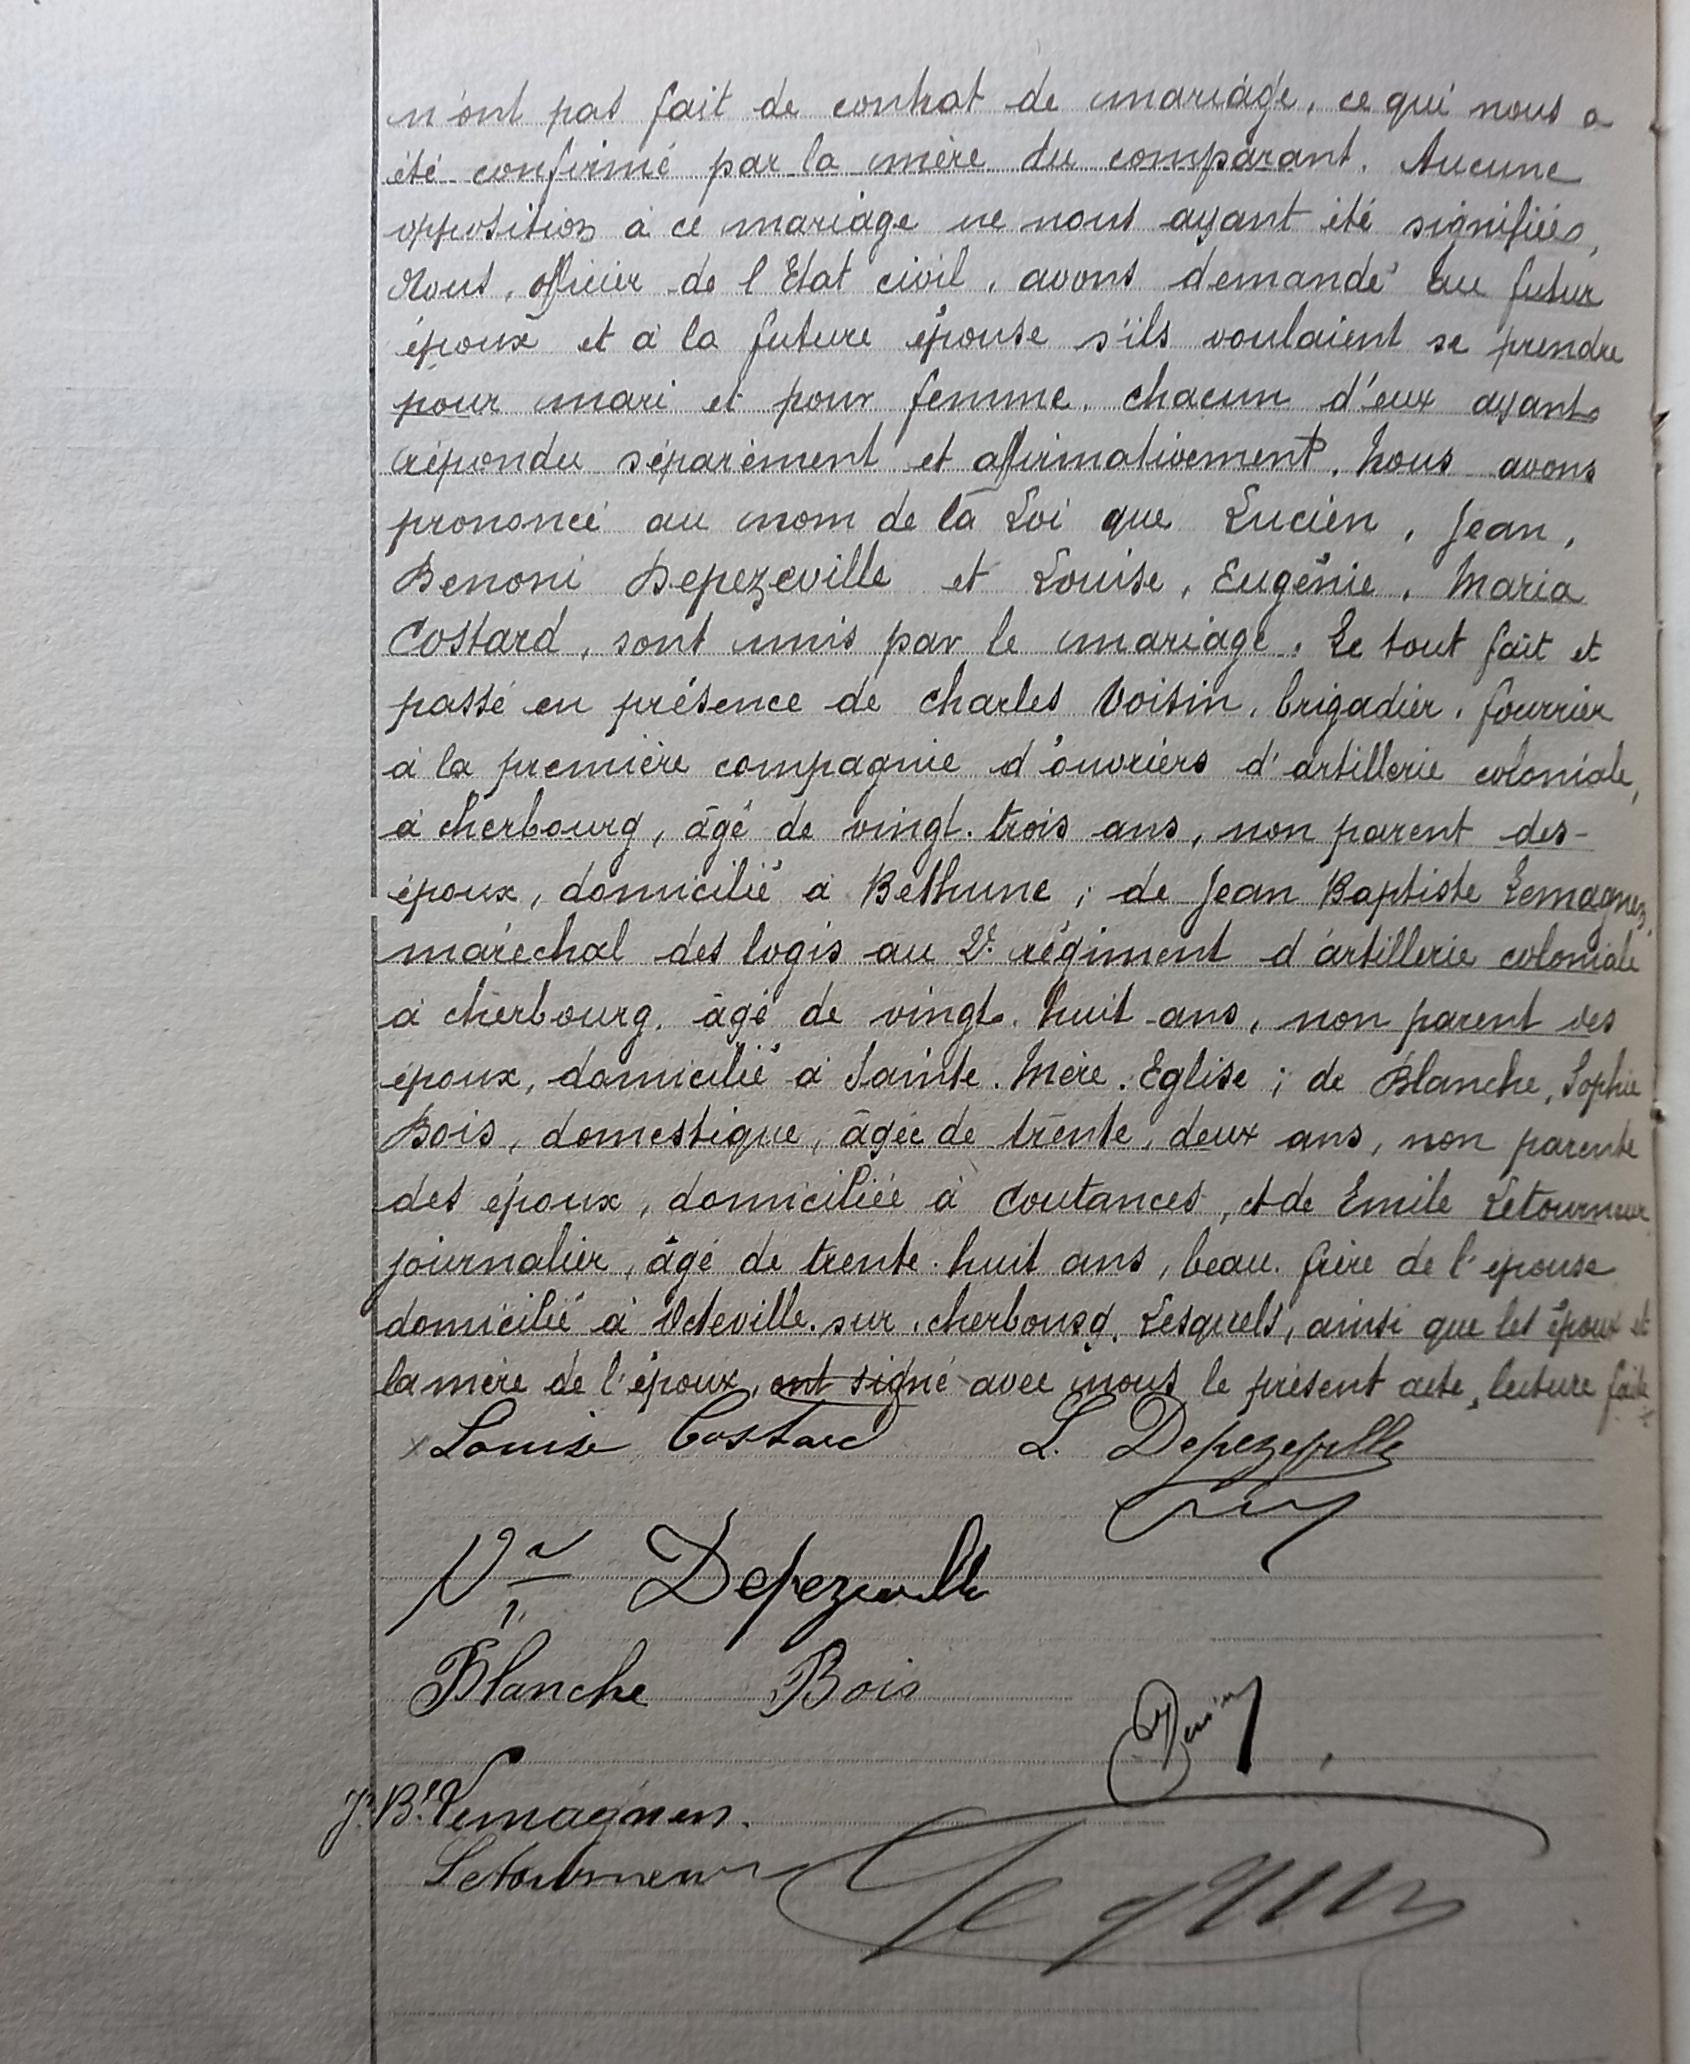 n'ont pas fait de contrat de mariage, ce qui nous a
été confirmé par la mère du comparant. Aucune
opposition à ce mariage ne nous ayant été signifiée,
Nous, officier de l'Etat civil, avons demandé au futur
époux et à la future épouse s'ils voulaient se prendre
pour mari et pour femme, chacun d'eux ayant
répondu séparément et affirmativement, Nous avons
prononcé au nom de la Loi que Lucien, Jean,
Benoni Depezeville et Louise, Eugénie, Maria
Costard, sont unis par le mariage. Le tout fait et
passé en présence de Charles Voisin, brigadier, fourrier
à la première compagnie d'ouvriers d'artillerie coloniale,
à Cherbourg, âgé de vingt-trois ans, non parent des-
époux, domicilié à Béthune ; de Jean Baptiste Lemagnen,
maréchal des logis au 2e régiment d'artillerie coloniale
à Cherbourg, âgé de vingt-huit ans, non parent des
époux, domicilié à Sainte-Mère-Eglise ; de Blanche, Sophie
Bois, domestique, âgée de trente-deux ans, non parente
des époux, domiciliée à Coutances, et de Emile Letourneur
journalier, âgé de trente-huit ans, beau-frère de l'épouse
domicilié à Octeville-sur-Cherbourg. Lesquels, ainsi que les époux et
la mère de l'époux, ont signé avec nous le présent acte, lecture faite
Louise Costard L. Depezeville
Ve Depezeville
Blanche Bois
Voisin
J. Bte Lemagnen.
Letourneur